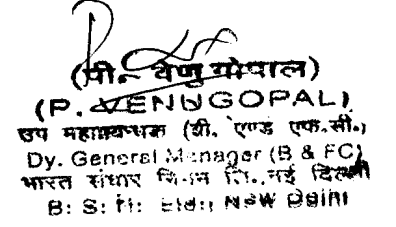 (पी. वेणु गोपाल)
(P. VENUGOPAL)
उप महाप्रबन्धक (बी. एण्ड एफ.सी.)
Dy. General Manager (B & FC)
भारत संचार निगम लि., नई दिल्ली
B. S. N. Ltd., New Delhi